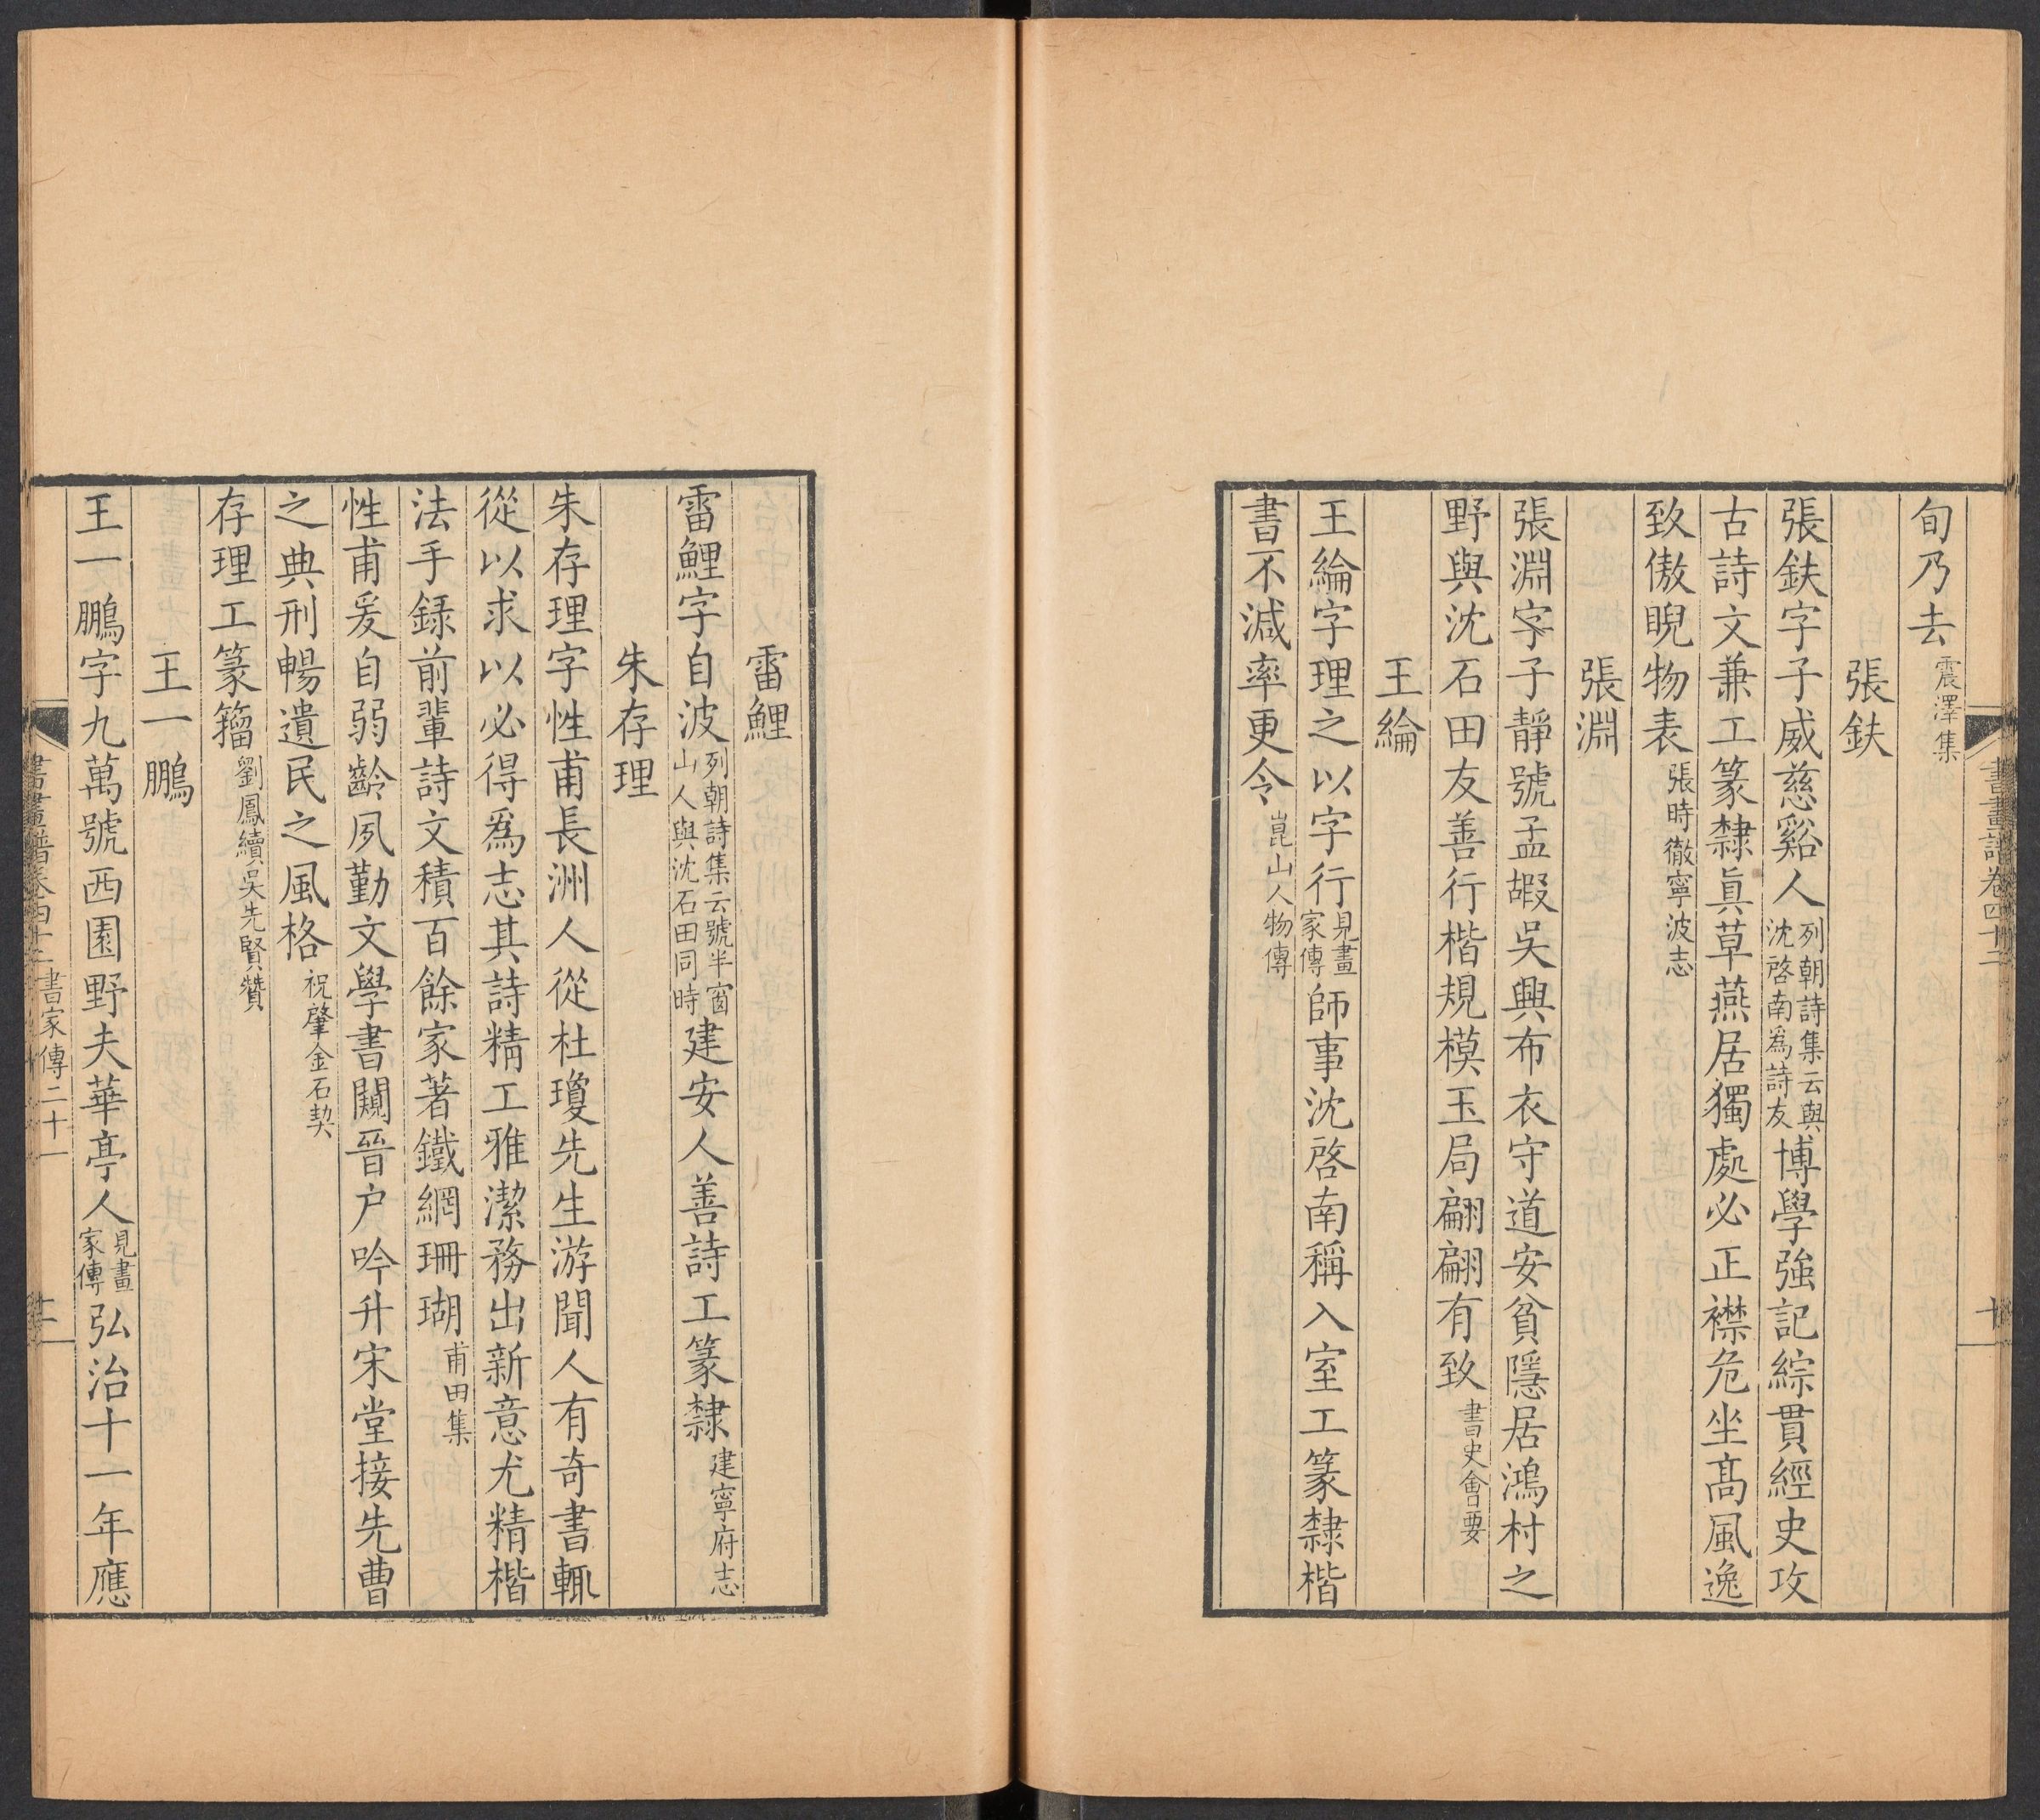 旬乃去震澤集
張鈇
張鈇字子威慈谿人列朝詩集云與沈啓南爲詩友博學強記綜貫經史攻
古詩文兼工篆隸眞草燕居獨處必正襟危坐高風逸
致傲睨物表張時徹寧波志
張淵
張淵字子靜號孟嘏吳興布衣守道安貧隱居鴻村之
野與沈石田友善行楷規模玉局翩翩有致書史會要
王綸
王綸字理之以字行見畫家傳師事沈啓南稱入室工篆隸楷
書不減率更令崑山人物傳
書畫譜卷四十二
十
雷鯉
雷鯉字自波列朝詩集云號半窗山人與沈石田同時建安人善詩工篆隸建寧府志
朱存理
朱存理字性甫長洲人從杜瓊先生游聞人有奇書輒
從以求以必得爲志其詩精工雅潔務出新意尤精楷
法手錄前輩詩文積百餘家著鐵網珊瑚甫田集
性甫爰自弱齡夙勤文學書闖晉户吟升宋堂接先曹
之典刑暢遺民之風格祝肇金石契
存理工篆籀劉鳳續吳先賢贊
王一鵬
王一鵬字九萬號西園野夫華亭人見畫家傳弘治十一年應
書畫譜卷四十二 書家傳二十一